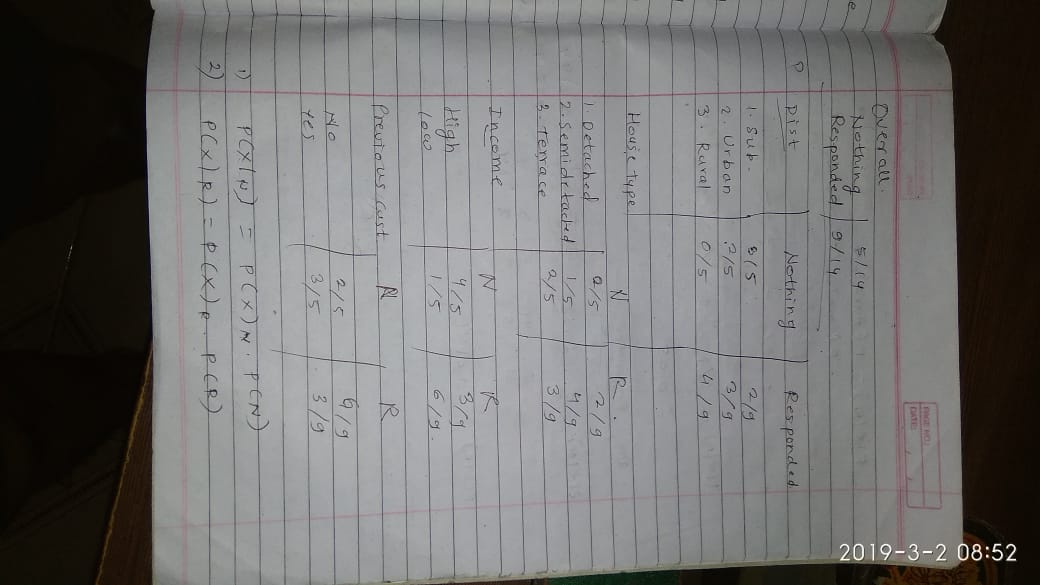 Overall.
Nothing 5/14
Responded 9/14
D Dist Nothing Responded
1. Sub. 3/5 2/9
2. Urban 2/5 3/9
3. Rural 0/5 4/9
House type N R.
1. Detached 2/5 2/9
2. Semidetached 1/5 4/9
3. Terrace 2/5 3/9
Income N R
High 4/5 3/9
Low 1/5 6/9.
Previous Cust N R
No 2/5 6/9
Yes 3/5 3/9
1) P(X|N) = P(X)N . P(N)
2) P(X|R) = P(X)R . P(R)
PAGE NO.:
DATE: / /
2019-3-2 08:52